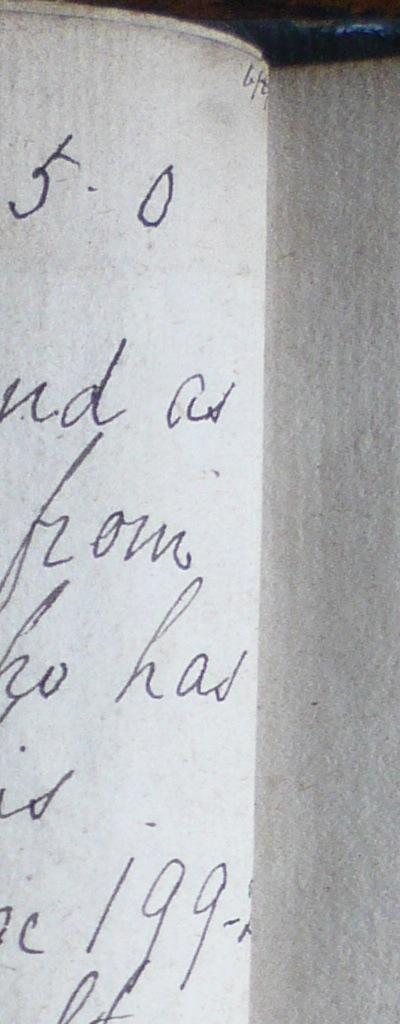 5 . 0
nd as
from
ho has
is
ac 199-